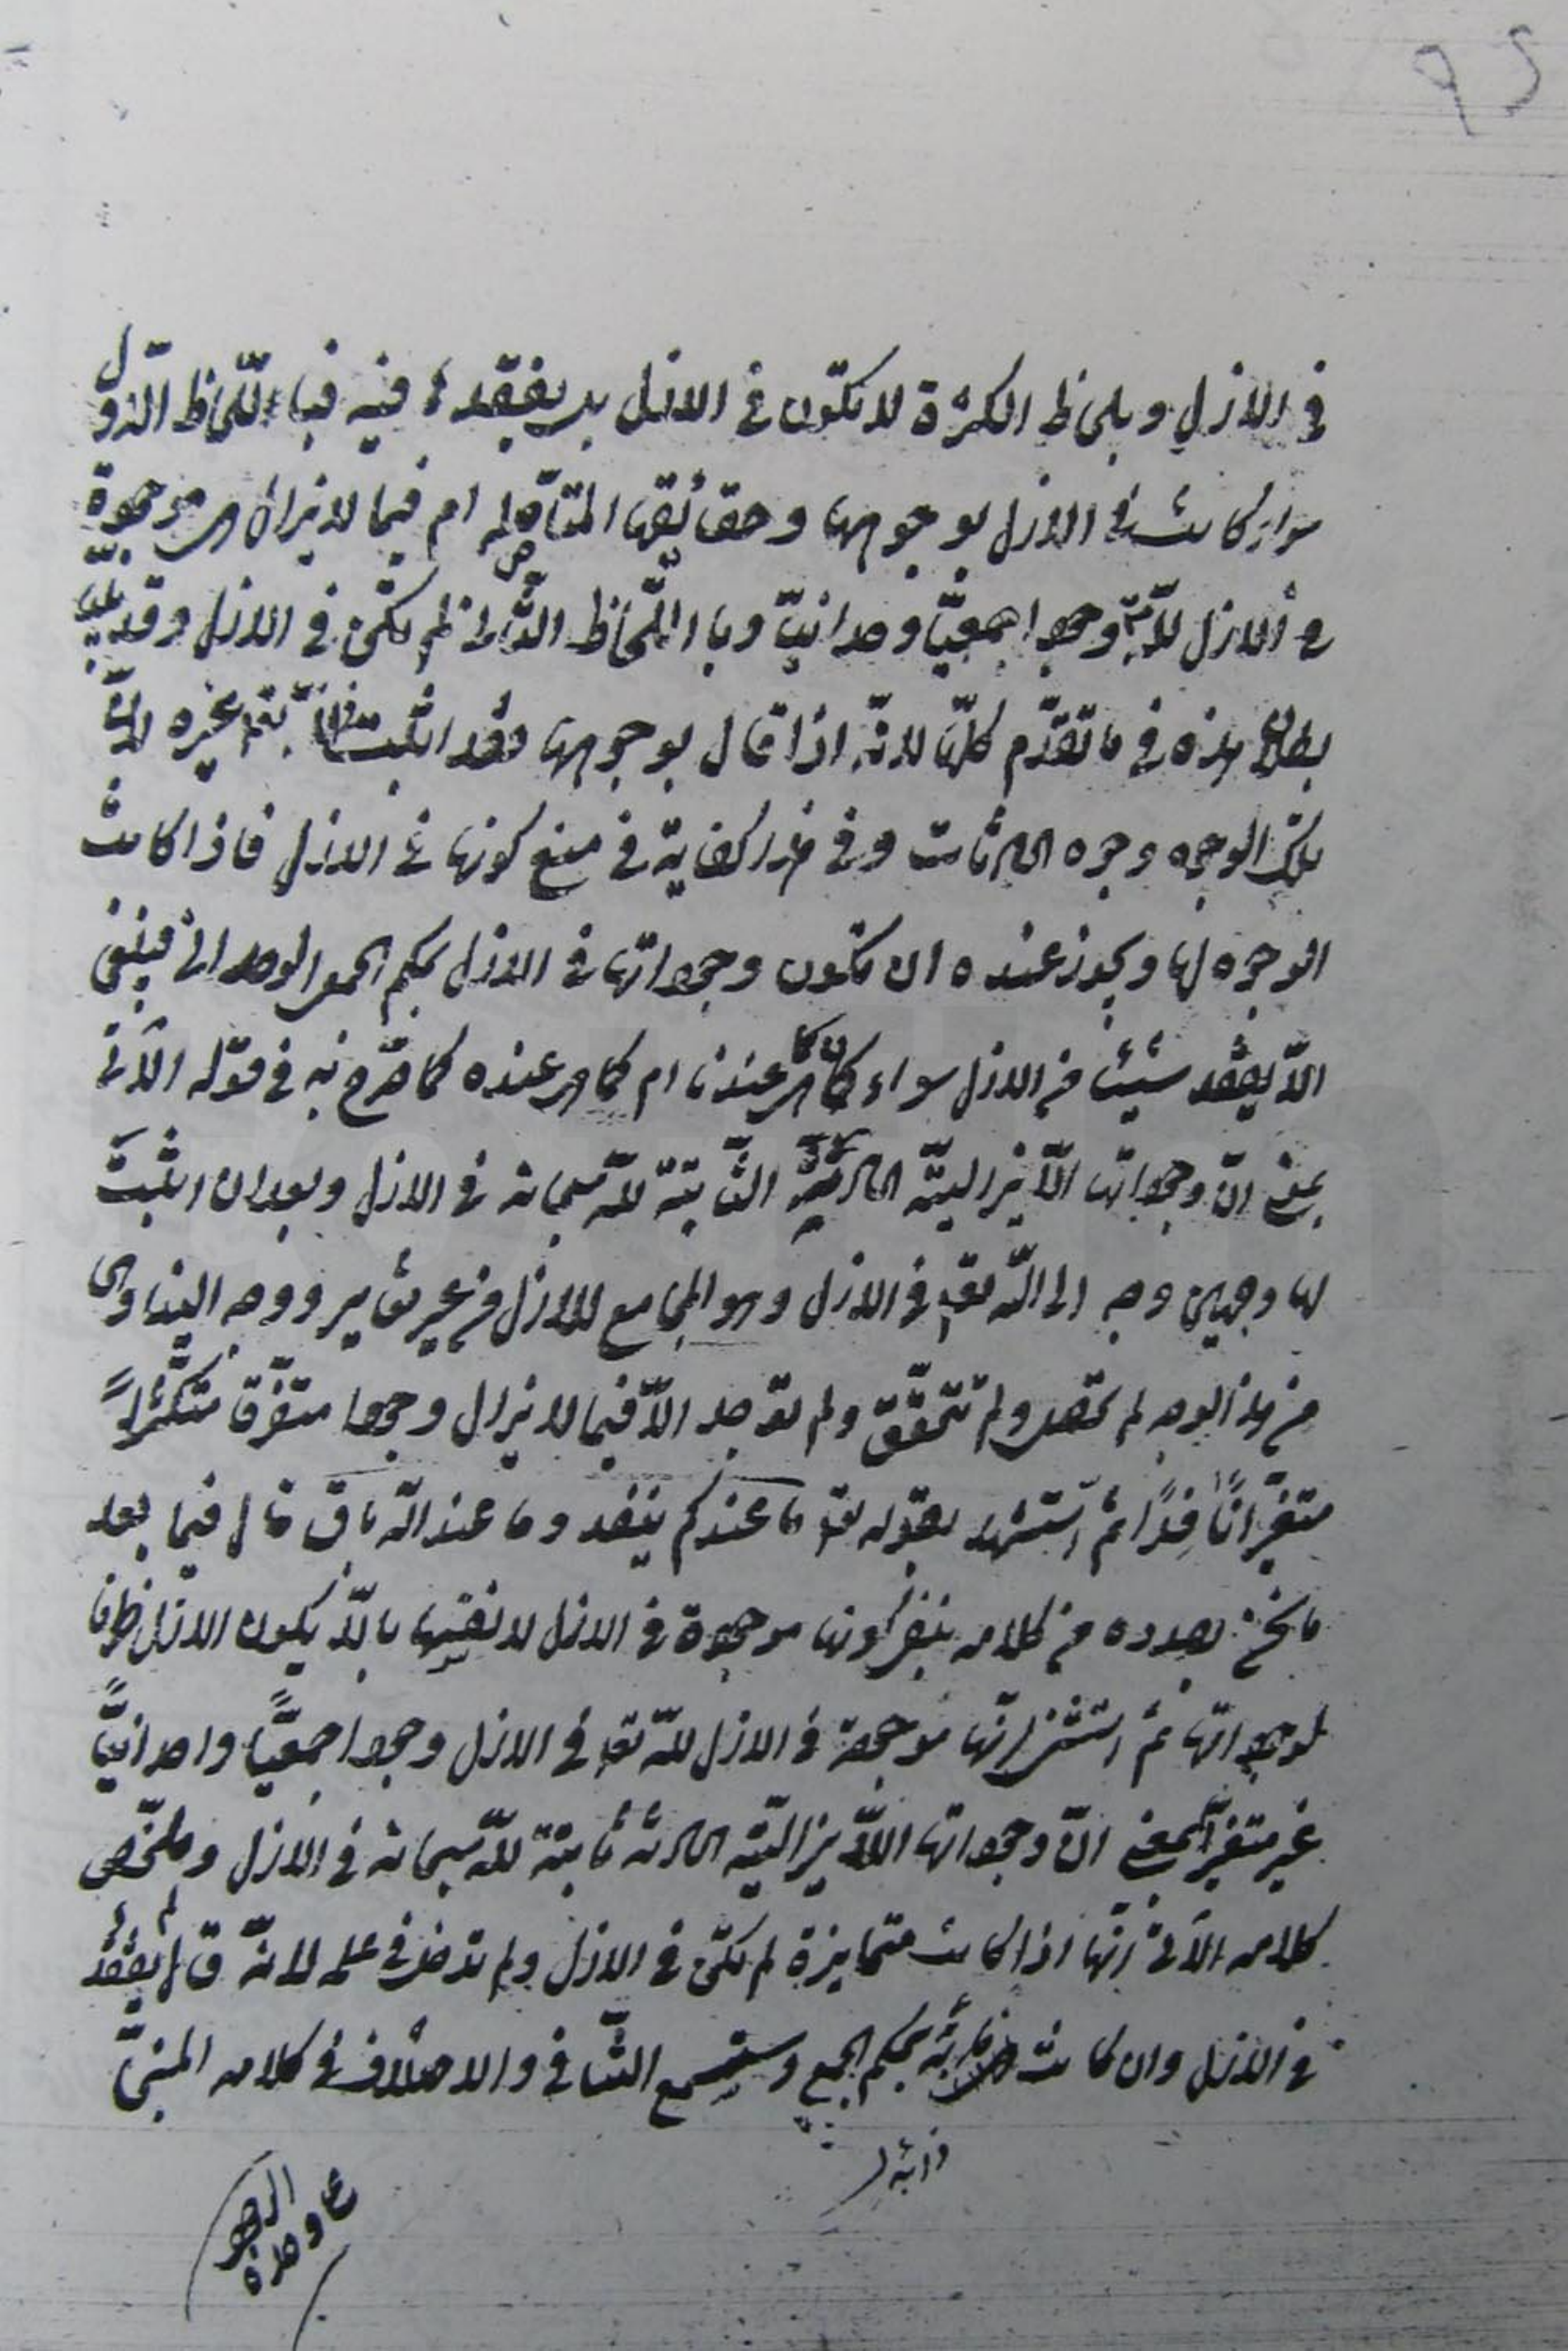 في الازل وبلحاظ الكثرة لا تكون في الازل بل يفقدها فيه فباللحاظ الاول
سواء كانت في الازل بوجوهها وحقائقها المتأصلة ام فيما لا يزال هي موجودة
في الازل للّه وجودا جمعيّا وحدانيّا وباللّحاظ الثّاني لم تكن في الازل وقد بيّنا
بطلان هذه في ما تقدّم كلّها لانّه اذا قال بوجوهها فقد اثبت مغايرته لغيره لانّ
تلك الوجوه وجوه الحادثات وفي هذا كفاية في منع كونها في الازل فاذا كانت
الوجوه لها ويجوز عنده ان تكون وجوداتها في الازل بحكم الجمع الوحداني فينبغي
الّا يفقد شيئا في الازل سواء كان كما هي عندنا ام كما هي عنده كما صرّح به في قوله الآتي
بمعنى انّ وجوداتها اللّا يزاليّة الحادثة الثّابتة للّه سبحانه في الازل وبعد ان اثبت
لها وجهين وجه الى اللّه تع في الازل وهو الجامع للازل من غير تغاير ووجه الينا وهي
من هذا الوجه لم تحصل ولم تتحقّق ولم توجد الّا فيما لا يزال وجودا متفرّقا متكثّرا
متغيّرا نافدًا ثم استشهد بقوله تع ما عندكم ينفد وما عند اللّه باق قال فيما بعد
ما نحن بصدده من كلامه بنفي كونها موجودة في الازل لانفسها بالّا يكون الازل ظرفا
لوجوداتها ثم استثنى انّها موجودة في الازل للّه تع في الازل وجودا جمعيّا واحدانيّا
غير متغيّر بمعنى انّ وجوداتها اللّا يزاليّة الحادثة ثابتة للّه سبحانه في الازل وملخّص
كلامه الآتي انّها اذا كانت متمايزة لم تكن في الازل ولم تدخل في علمه لانّه قال لم يفقد
في الازل وان كانت بحكم الجمع وستسمع التّنافي والاختلاف في كلامه المبنيّ
ذائبة
على وحدة
الوجود